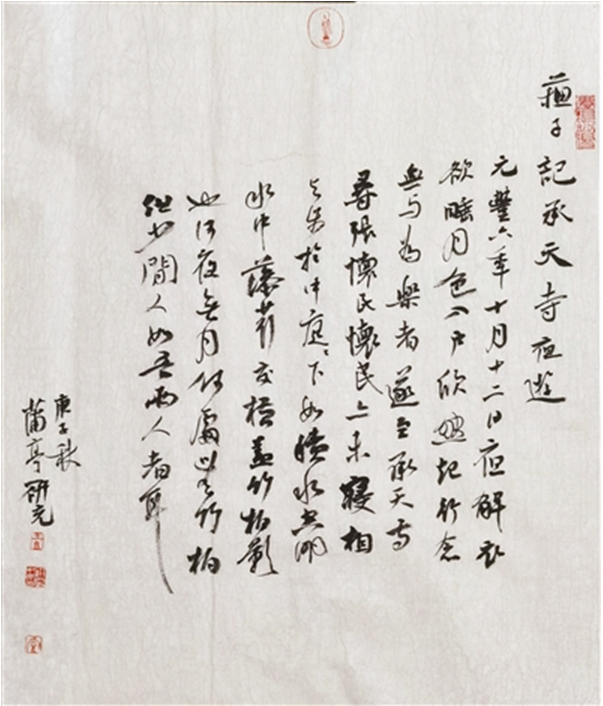 蘓子記承天寺夜遊
元豐六年十月十二日夜解衣
欲睡月色入户欣然起行念
無与為樂者遂至承天寺
尋張懷民懷民亦未寢相
与步於中庭〻下如積水空明
水中藻荇交橫蓋竹柏影
也何夜無月何處無竹柏
但少閒人如吾兩人者耳
庚子秋
蒲亭研